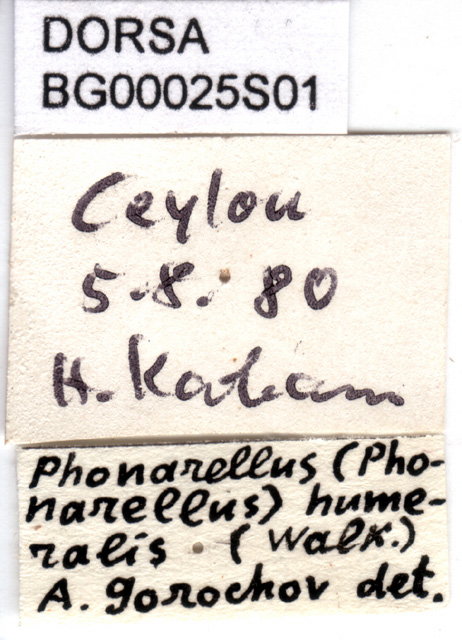 DORSA
BG00025S01
Ceylon
5.8.80
H.
Phonarellus (Pho-
narellus) hume-
ralis (Walk.)
A. Gorochov det.